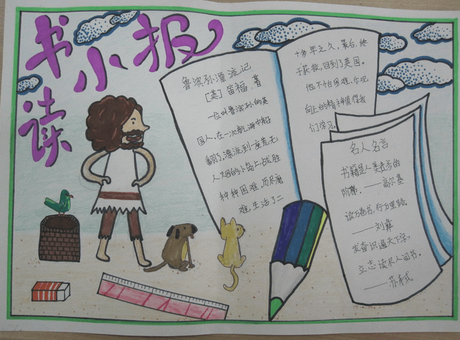 读书小报
鲁滨孙漂流记
[英] 笛福 著
一位叫鲁滨孙的英
国人，在一次航海中船
翻了，漂流到一座荒无
人烟的小岛上，战胜
种种困难，历尽磨
难，生活了二
十八年之久，最后，终
于获救，回到了英国。
他不怕困难，乐观
向上的精神值得我
们学习。
名人名言
书籍是人类进步的
阶梯。——高尔基
读万卷书，行万里路
——刘彝
发奋识遍天下字，
立志读尽人间书。
——苏轼